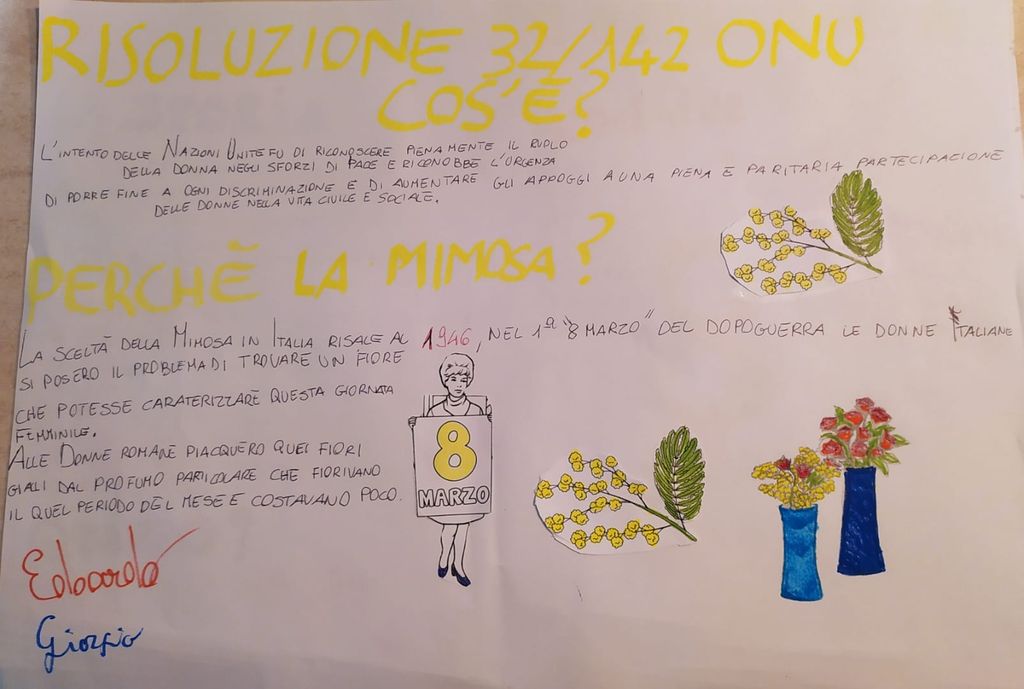 RISOLUZIONE 32/142 ONU
COS'È?
L'INTENTO DELLE NAZIONI UNITE FU DI RICONOSCERE PIENAMENTE IL RUOLO
DELLA DONNA NEGLI SFORZI DI PACE E RICONOBBE L'URGENZA
DI PORRE FINE A OGNI DISCRIMINAZIONE E DI AUMENTARE GLI APPOGGI A UNA PIENA E PARITARIA PARTECIPAZIONE
DELLE DONNE NELLA VITA CIVILE E SOCIALE.
PERCHÈ LA MIMOSA?
LA SCELTA DELLA MIMOSA IN ITALIA RISALE AL 1946, NEL 1ª "8 MARZO" DEL DOPOGUERRA LE DONNE ITALIANE
SI POSERO IL PROBLEMA DI TROVARE UN FIORE
CHE POTESSE CARATERIZZARE QUESTA GIORNATA
FEMMINILE.
ALLE DONNE ROMANE PIACQUERO QUEI FIORI
GIALI DAL PROFUMO PARTICOLARE CHE FIORIVANO
IL QUEL PERIODO DEL MESE E COSTAVANO POCO.
8
MARZO
Edoardo
Giorgio